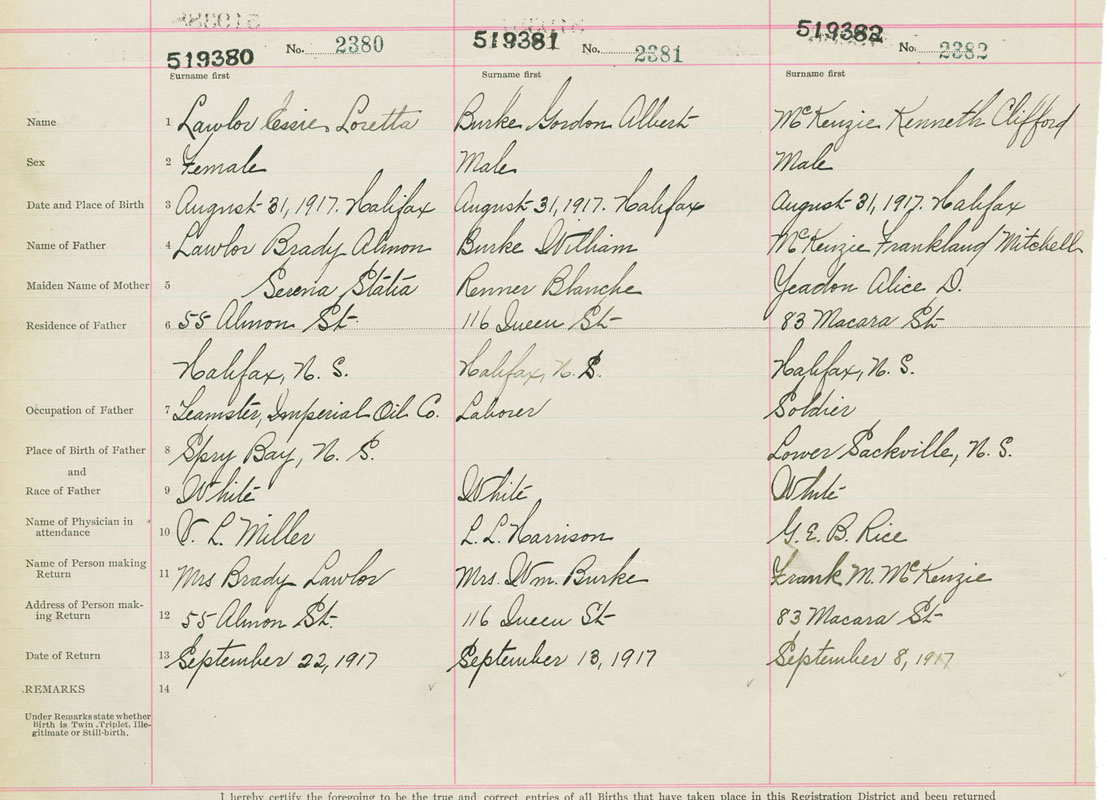 519380 No. 2380 519381 No. 2381 519382 No. 2382
Surname first Surname first Surname first
Name 1 Lawlor Essie Loretta Burke Gordon Albert McKenzie Kenneth Clifford
Sex 2 Female Male Male
Date and Place of Birth 3 August 31, 1917. Halifax August 31, 1917. Halifax August 31, 1917. Halifax
Name of Father 4 Lawlor Brady Almon Burke William McKenzie Frankland Mitchell
Maiden Name of Mother 5 Serena Statia Renner Blanche Yeadon Alice D.
Residence of Father 6 55 Almon St. 116 Queen St 83 Macara St
Halifax, N. S. Halifax, N. S. Halifax, N. S.
Occupation of Father 7 Teamster, Imperial Oil Co. Laborer Soldier
Place of Birth of Father 8 Spry Bay, N. S. Lower Sackville, N. S.
and
Race of Father 9 White White White
Name of Physician in
attendance 10 V. L. Miller L. L. Harrison G. E. B. Rice
Name of Person making
Return 11 Mrs Brady Lawlor Mrs. Wm. Burke Frank M. McKenzie
Address of Person mak-
ing Return 12 55 Almon St. 116 Queen St 83 Macara St
Date of Return 13 September 22, 1917 September 13, 1917 September 8, 1917
REMARKS 14
Under Remarks state whether
Birth is Twin, Triplet, Ille-
gitimate or Still-birth.
I hereby certify the foregoing to be the true and correct entries of all Births that have taken place in this Registration District and been returned